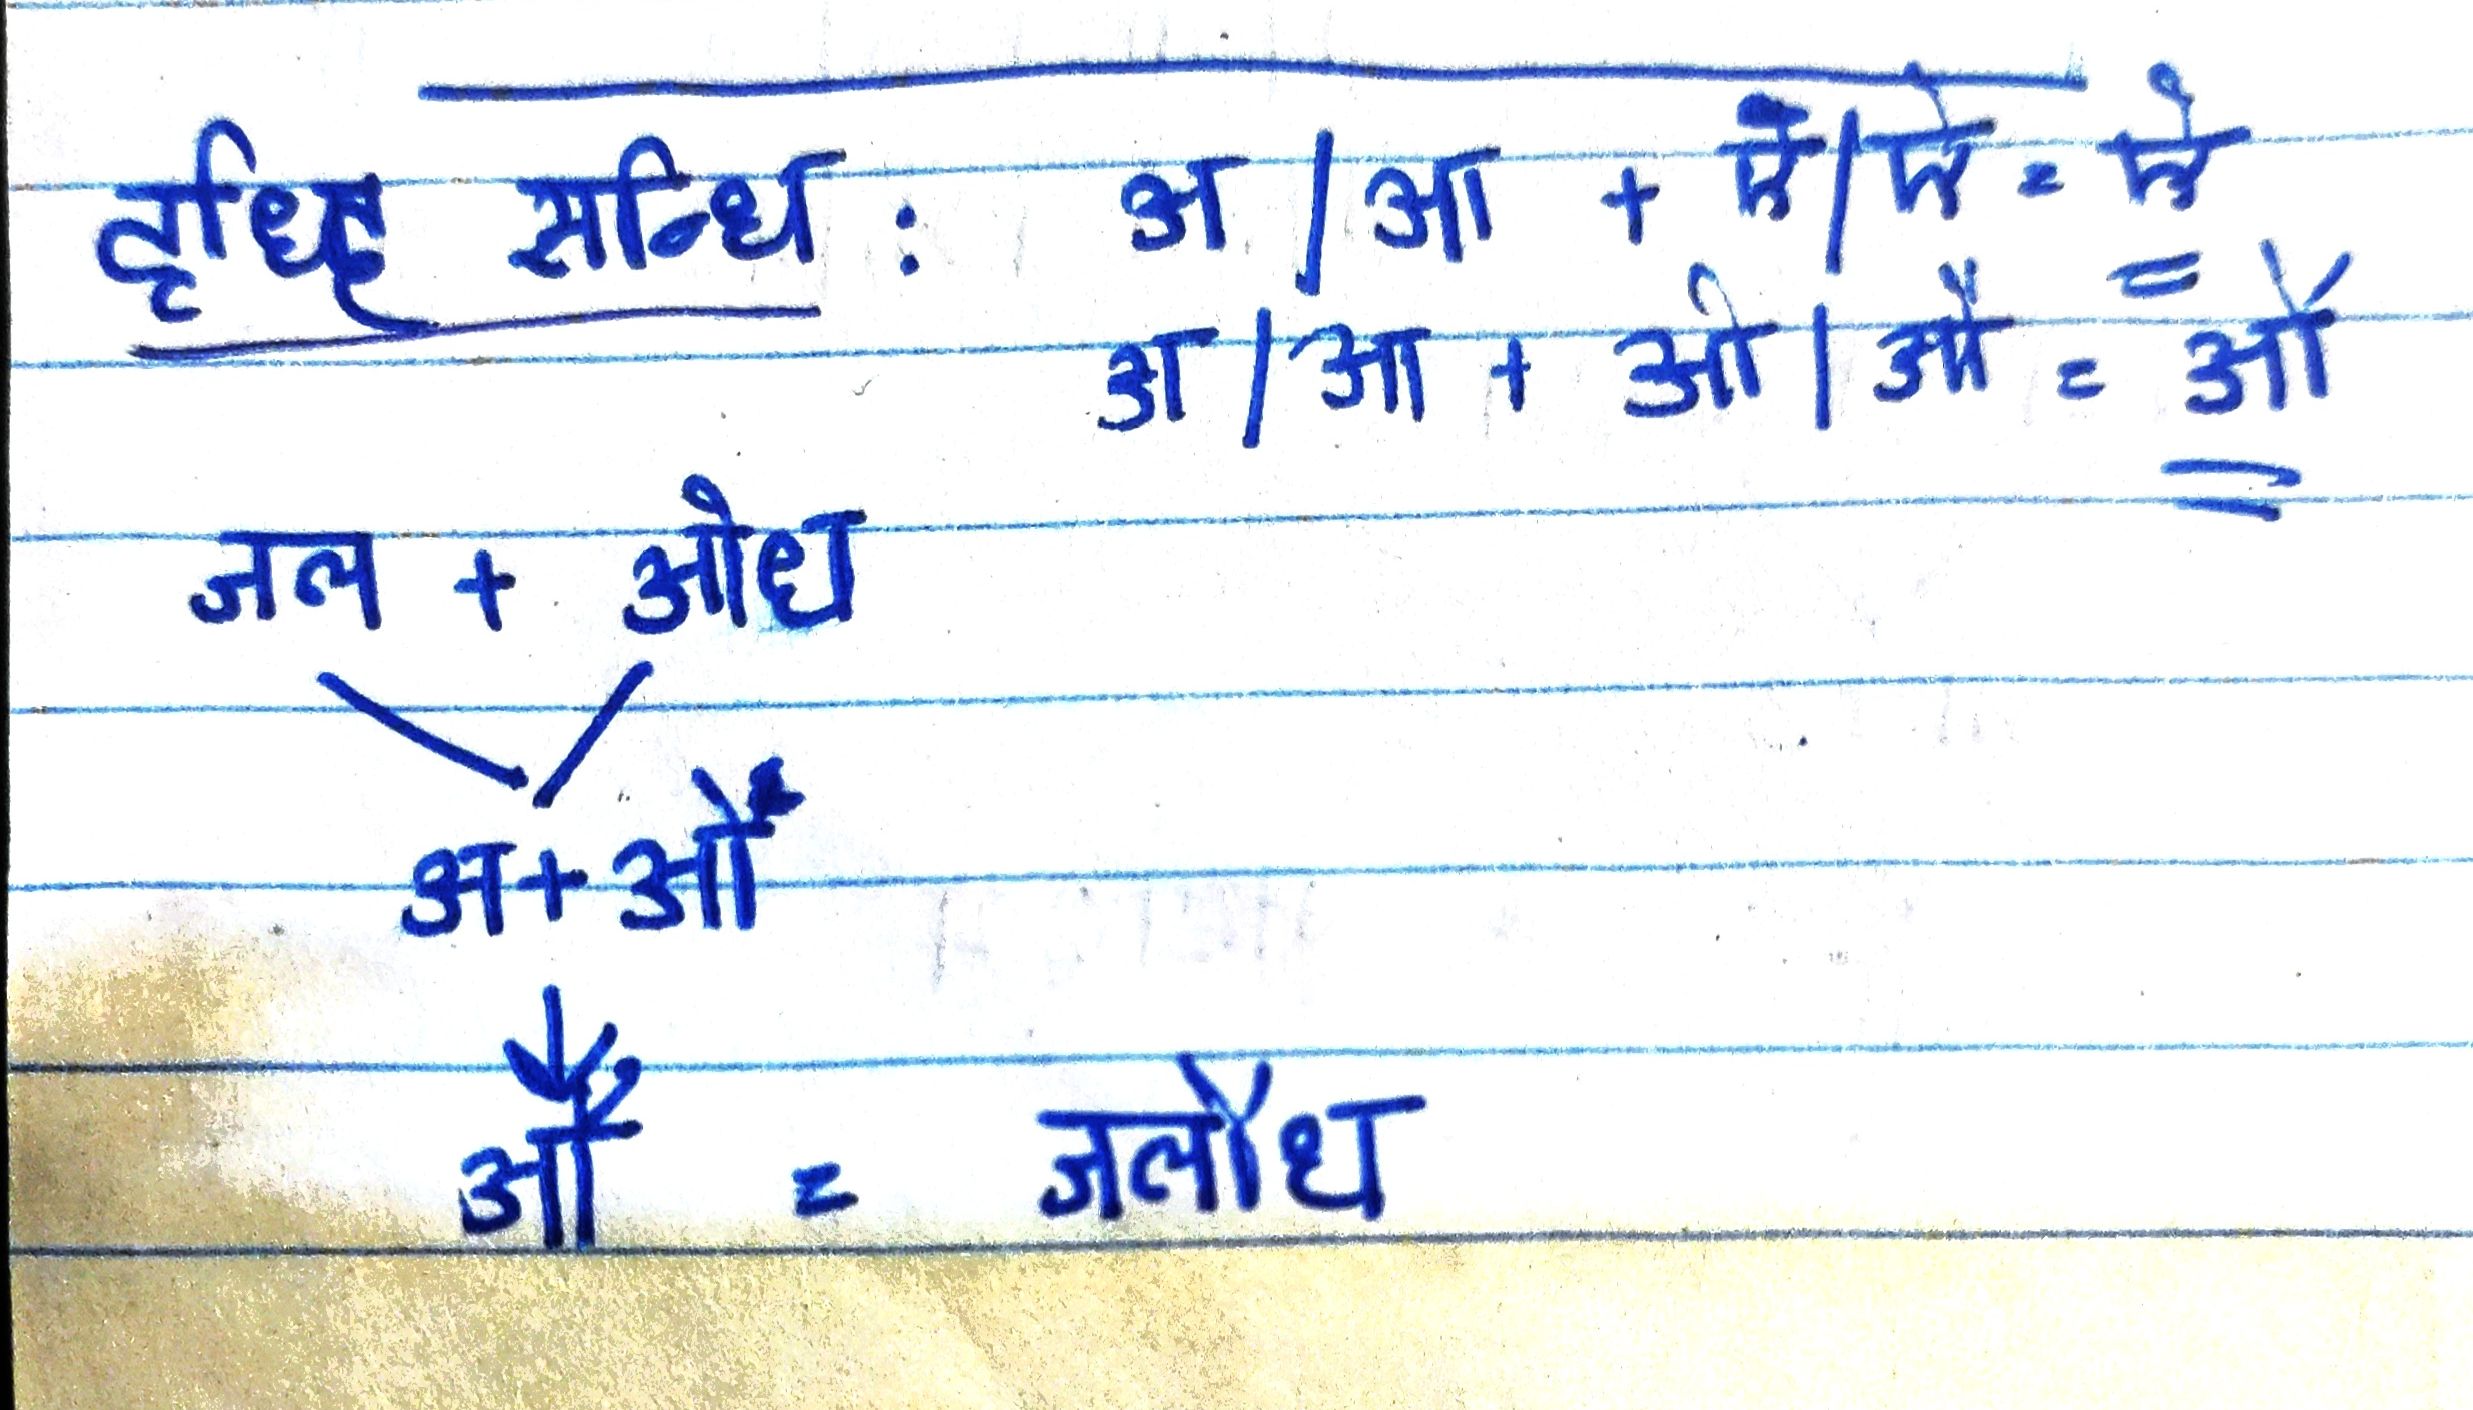 वृध्दि सन्धि : अ / आ + ए / ऐ = ऐ
अ / आ + ओ / औ = औ
जल + ओध
अ + ओ
औ = जलौध